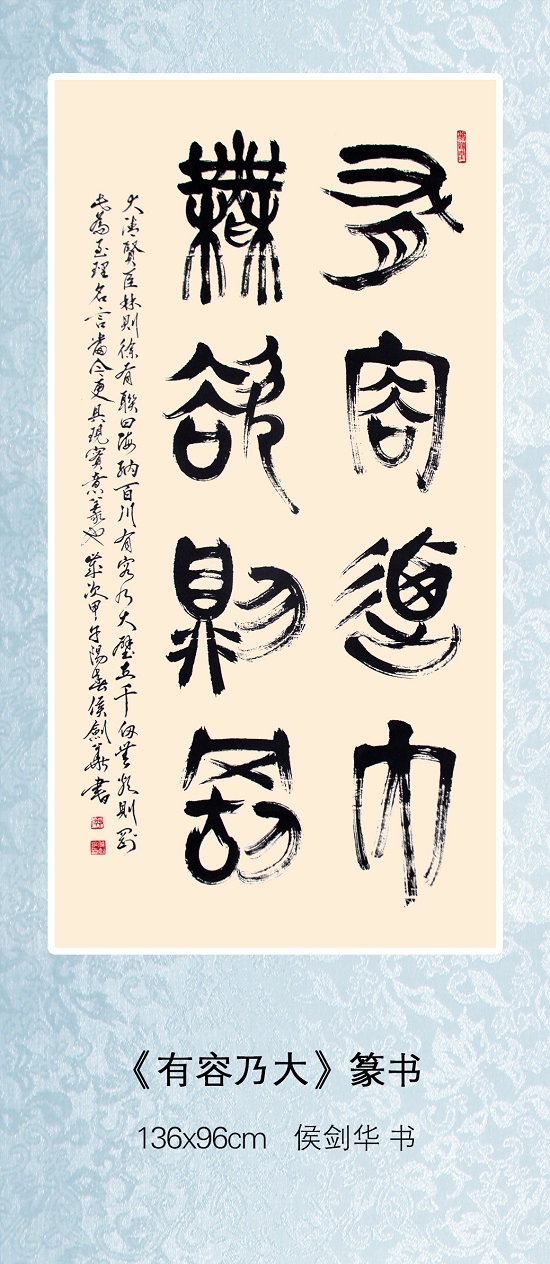 有容迺大
無欲則剛
大清賢臣林則徐有聯曰海納百川有容乃大壁立千仞無欲則剛
此為至理名言當今更具現實意義也歲次甲午陽春侯劍華書
《有容乃大》篆书
136x96cm 侯剑华 书